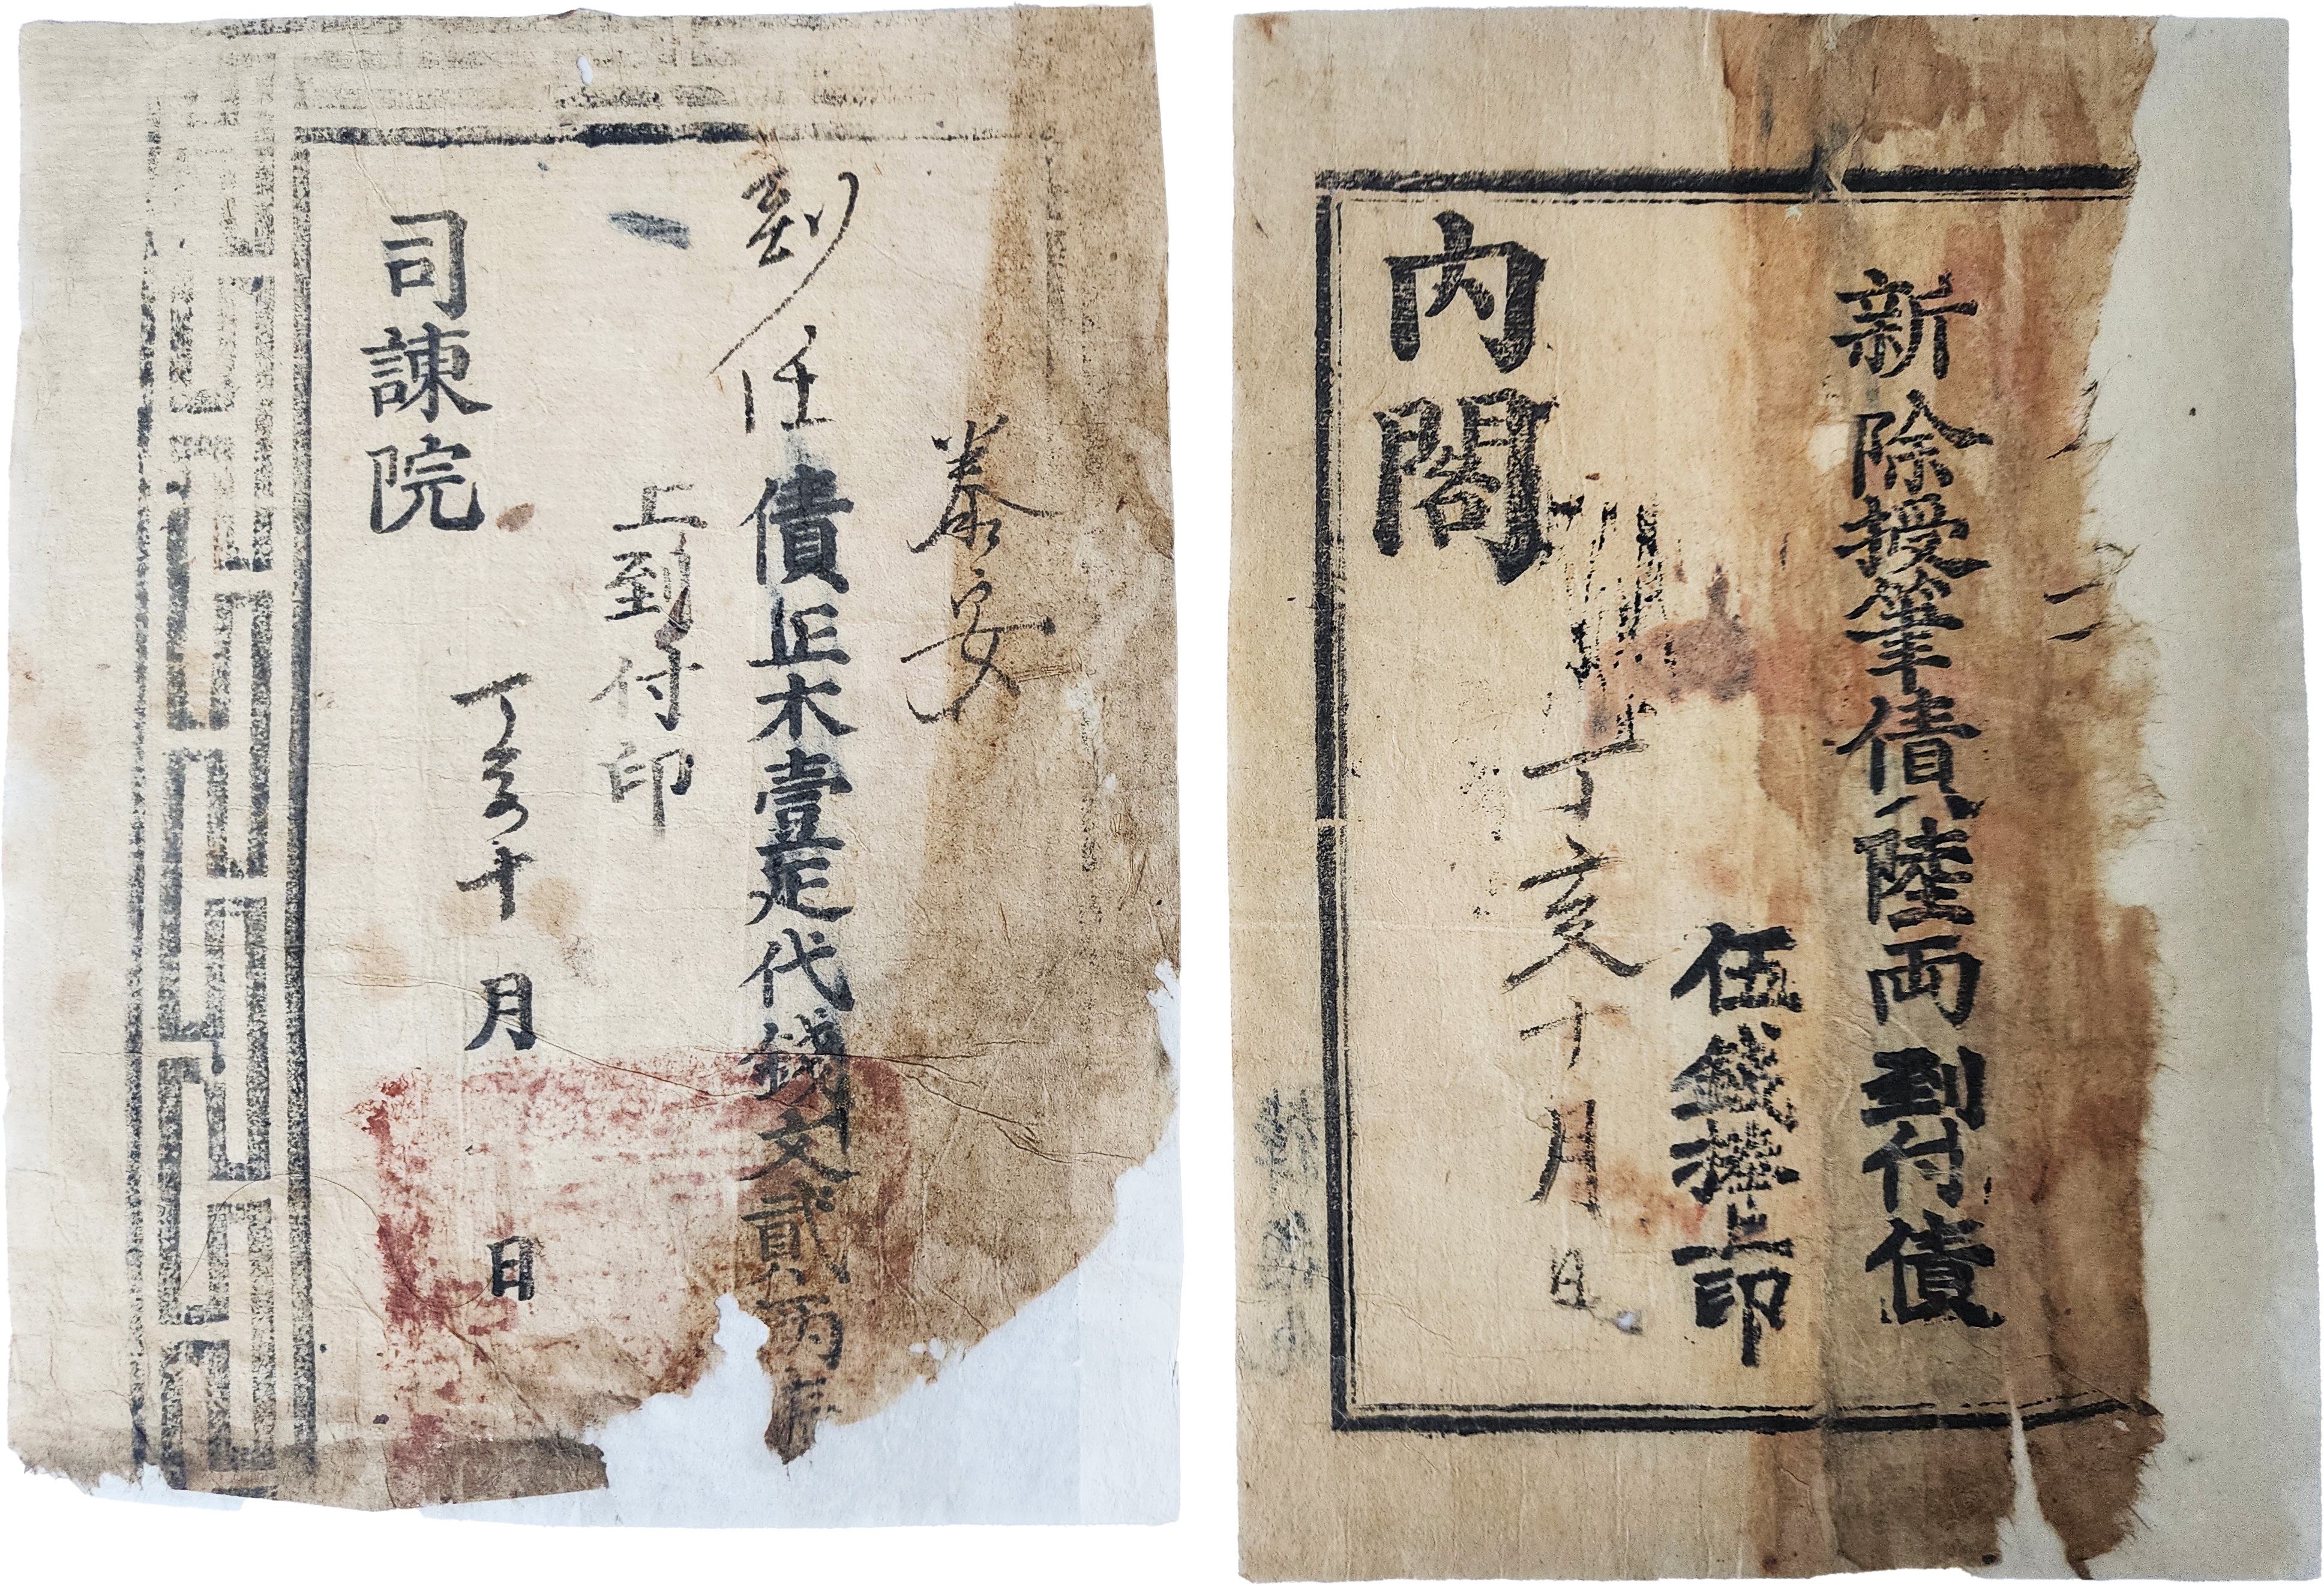 泰安
到任債正木壹疋代錢文貳兩
上到付印
丁亥十月 日
司諫院
新除授筆債陸両到付債
伍錢捧上印
丁亥十月日
內閣